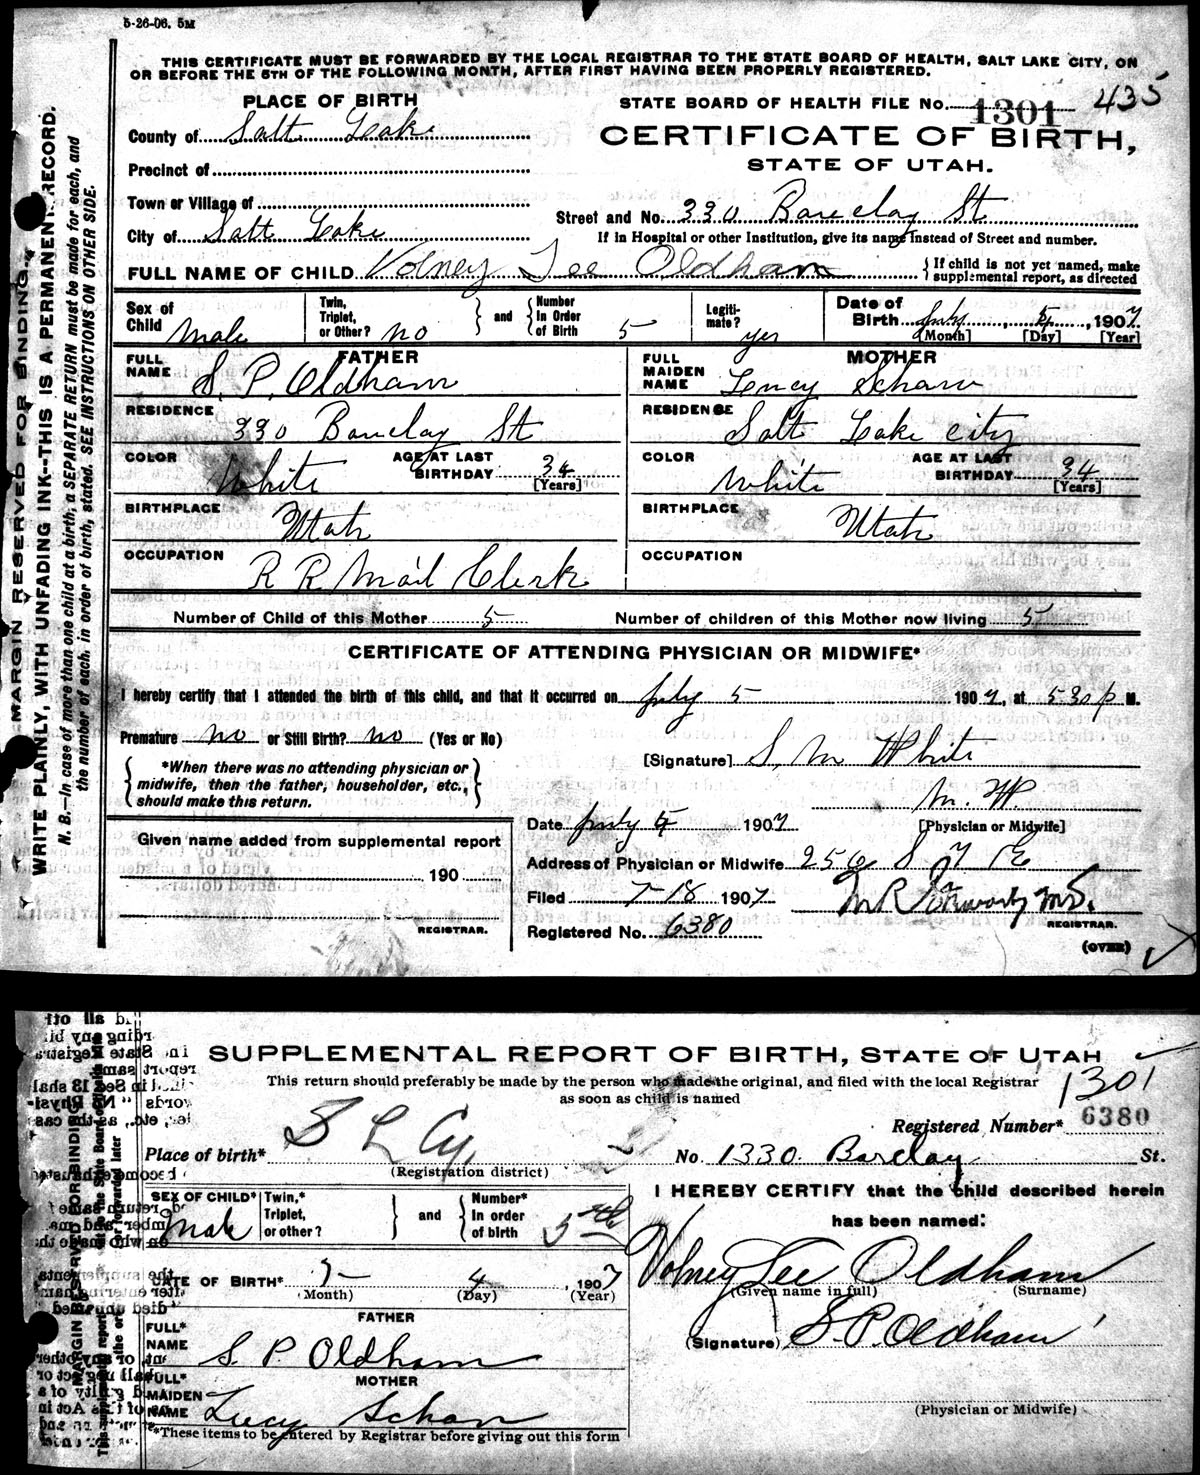 5-26-06. 5M
THIS CERTIFICATE MUST BE FORWARDED BY THE LOCAL REGISTRAR TO THE STATE BOARD OF HEALTH, SALT LAKE CITY, ON
OR BEFORE THE 5TH OF THE FOLLOWING MONTH, AFTER FIRST HAVING BEEN PROPERLY REGISTERED.
MARGIN RESERVED FOR BINDING.
WRITE PLAINLY, WITH UNFADING INK--THIS IS A PERMANENT RECORD.
N. B.—In case of more than one child at a birth, a SEPARATE RETURN must be made for each, and
the number of each, in order of birth, stated. SEE INSTRUCTIONS ON OTHER SIDE.
PLACE OF BIRTH
County of Salt Lake
Precinct of
Town or Village of
City of Salt Lake
STATE BOARD OF HEALTH FILE No. 1301 435
CERTIFICATE OF BIRTH,
STATE OF UTAH.
Street and No. 330 Barclay St
If in Hospital or other Institution, give its name instead of Street and number.
FULL NAME OF CHILD Volney Lee Oldham { If child is not yet named, make supplemental report, as directed
Sex of Child Male Twin, Triplet, or Other? no } and { Number In Order of Birth 5 Legitimate? yes Date of Birth July [Month], 4 [Day], 1907 [Year]
FATHER
FULL NAME S. P. Oldham
RESIDENCE 330 Barclay St
COLOR White AGE AT LAST BIRTHDAY 34 [Years]
BIRTHPLACE Utah
OCCUPATION R R Mail Clerk
MOTHER
FULL MAIDEN NAME Lucy Schaw
RESIDENCE Salt Lake City
COLOR White AGE AT LAST BIRTHDAY 34 [Years]
BIRTHPLACE Utah
OCCUPATION
Number of Child of this Mother 5 Number of children of this Mother now living 5
CERTIFICATE OF ATTENDING PHYSICIAN OR MIDWIFE*
I hereby certify that I attended the birth of this child, and that it occurred on July 5 1907, at 530 p M.
Premature no or Still Birth? no (Yes or No)
{ *When there was no attending physician or
midwife, then the father, householder, etc.,
should make this return. }
[Signature] S. M White
M. W.
[Physician or Midwife]
Given name added from supplemental report
190
REGISTRAR.
Date July 4 1907
Address of Physician or Midwife 256 S 7 E
Filed 7-18 1907
REGISTRAR.
Registered No. 6380
(OVER)
SUPPLEMENTAL REPORT OF BIRTH, STATE OF UTAH
This return should preferably be made by the person who made the original, and filed with the local Registrar
as soon as child is named
1301
Registered Number* 6380
Place of birth* S L Cy.
(Registration district)
No. 1330 Barclay St.
SEX OF CHILD* Male Twin,* Triplet, or other? } and { Number* In order of birth 5th
DATE OF BIRTH* 7 (Month) 4 (Day), 1907 (Year)
FATHER
FULL* NAME S. P. Oldham
MOTHER
FULL* MAIDEN NAME Lucy Schaw
*These items to be entered by Registrar before giving out this form
I HEREBY CERTIFY that the child described herein
has been named:
Volney Lee Oldham
(Given name in full) (Surname)
(Signature) S. P. Oldham
(Physician or Midwife)